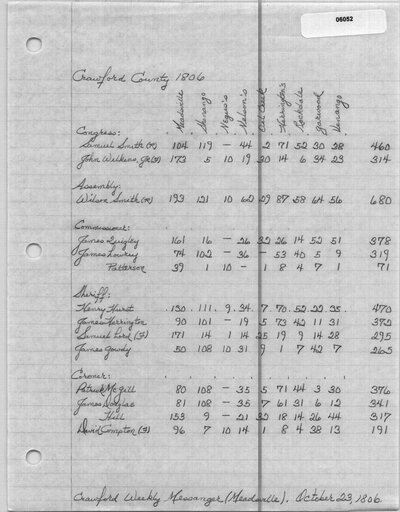 06052
Crawford County 1806
Meadville Shenango Negro's Nelson's Oil Creek Herrington's Rockdale Garwood Venango
Congress:
Samuel Smith (R) 104 119 — 44 2 71 52 30 28 460
John Wilkins, Jr (F) 173 5 10 19 30 14 6 34 23 314
Assembly:
Wilson Smith (R) 193 121 10 62 29 87 58 64 56 680
Commissioner:
James Quigley 161 16 — 26 32 26 14 52 51 378
James Lowrey 74 102 — 36 — 53 40 5 9 319
Patterson 39 1 10 — 1 8 4 7 1 71
Sheriff:
Henry Hurst 130 111 9 34 7 70 52 22 35 470
James Herrington 90 101 — 19 5 73 42 11 31 372
Samuel Lord (F) 171 14 1 14 25 19 9 14 28 295
James Gowdy 50 108 10 31 9 1 7 42 7 265
Coroner:
Patrick McGill 80 108 — 35 5 71 44 3 30 376
James Douglas 81 108 — 35 7 61 31 6 12 341
Hill 153 9 — 21 32 18 14 26 44 317
David Compton (F) 96 7 10 14 1 8 4 38 13 191
Crawford Weekly Messanger (Meadville). October 23, 1806.